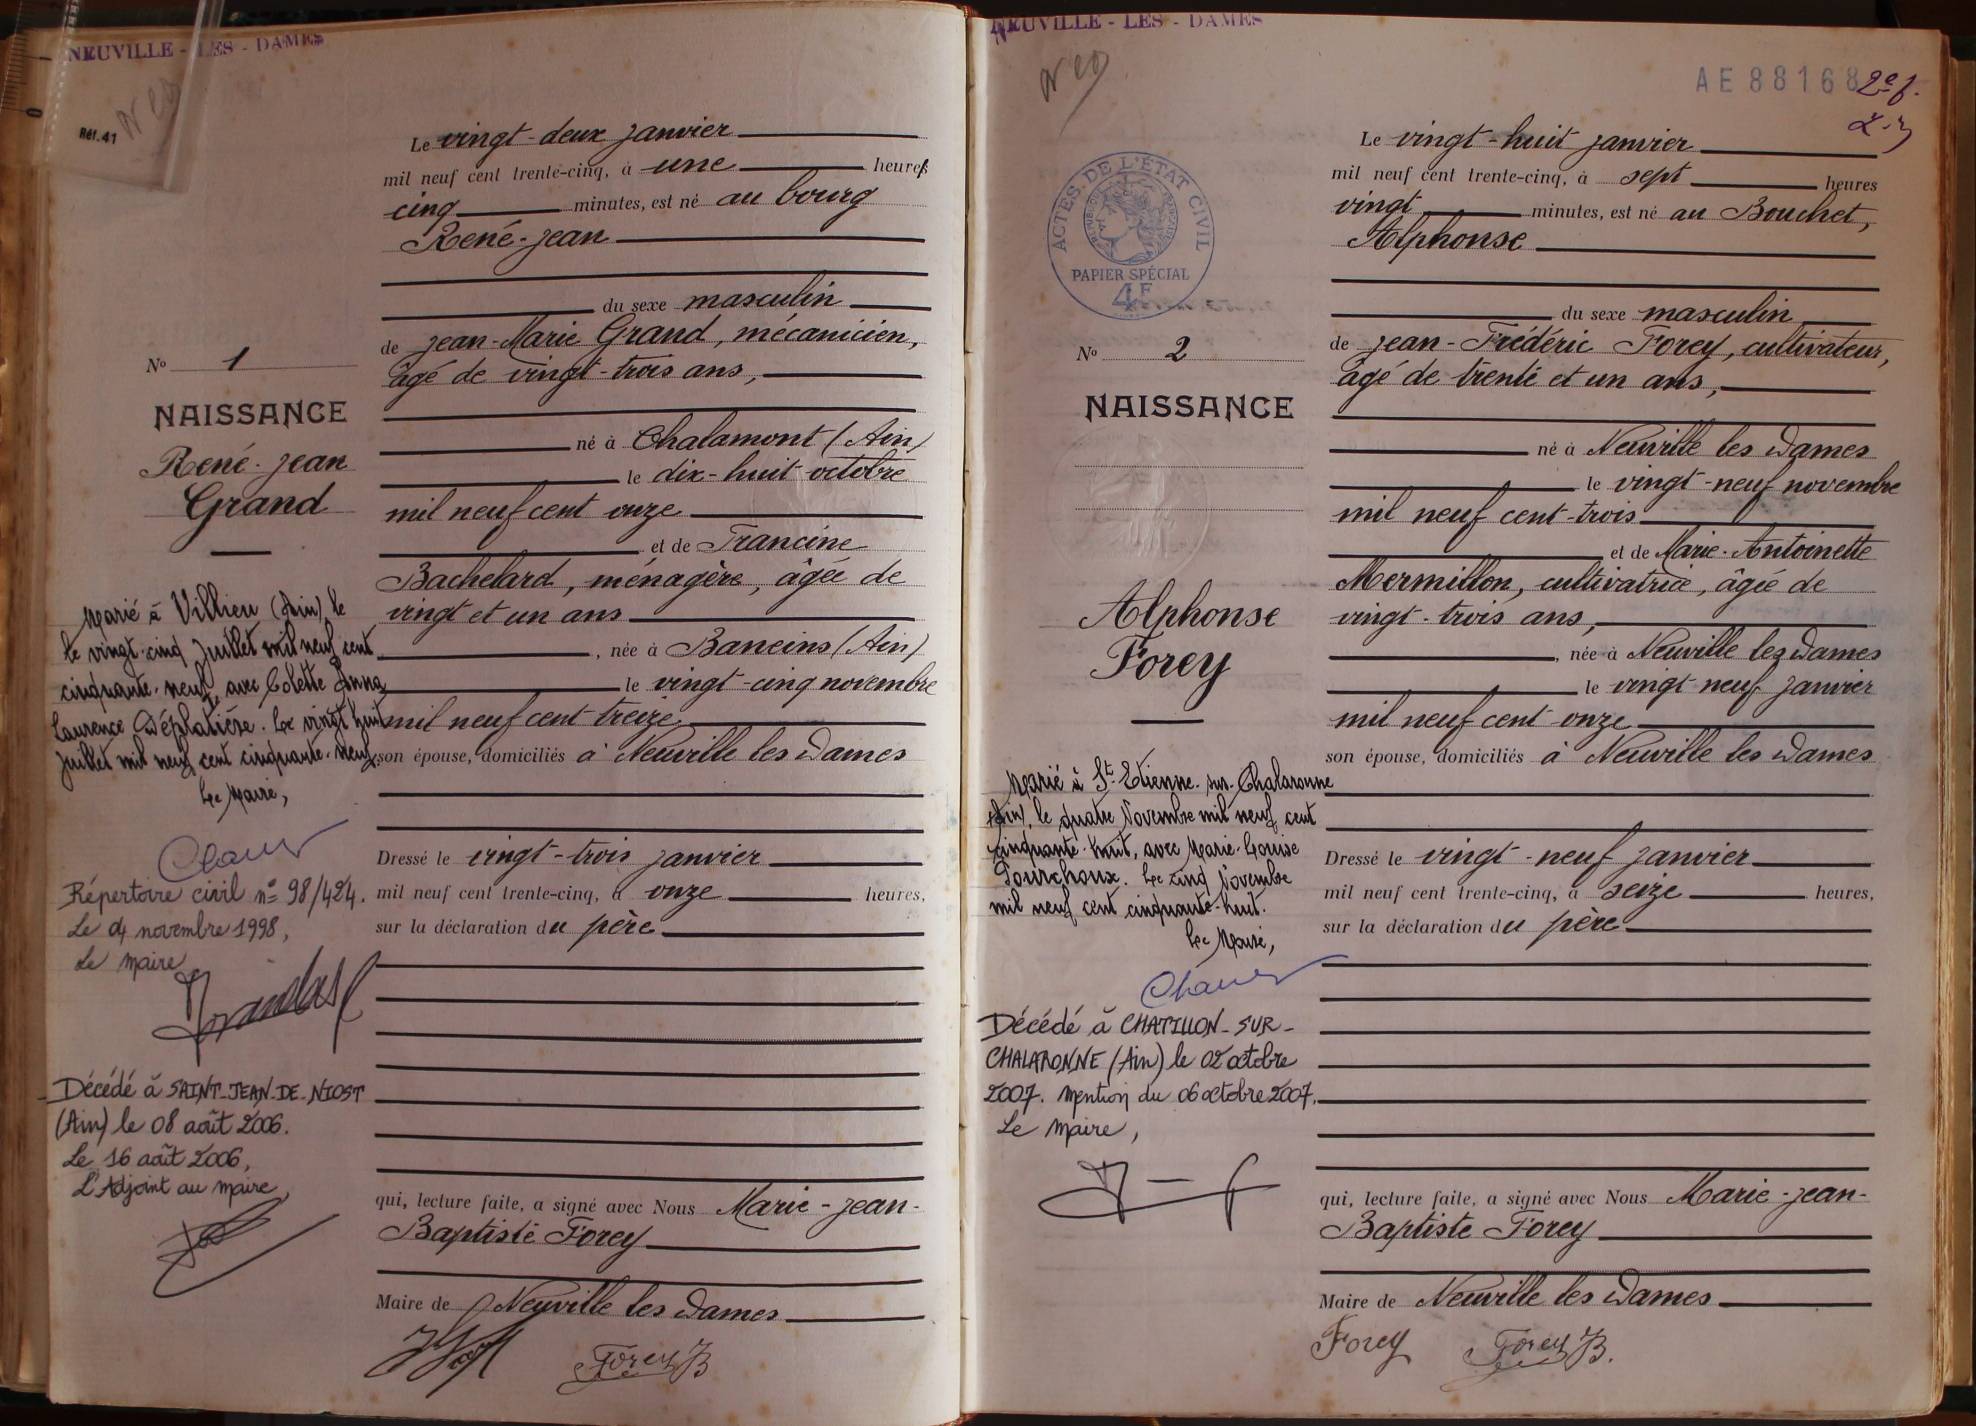 NEUVILLE - LES - DAMES
Réf.41
N° 1
NAISSANCE
René-Jean
Grand
Marié à Villieu (Ain), le
le vingt-cinq Juillet mil neuf cent
cinquante-neuf, avec Colette Anna
Laurence Déplatière. Le vingt huit
Juillet mil neuf cent cinquante-neuf
Le Maire,
Répertoire civil n° 98/424.
Le 04 novembre 1998,
Le maire
Décédé à SAINT-JEAN-DE-NIOST
(Ain) le 08 août 2006.
Le 16 août 2006,
L'Adjoint au maire,
Le vingt-deux janvier
mil neuf cent trente-cinq, à une heures
cinq minutes, est né au bourg
René-Jean
du sexe masculin
de Jean-Marie Grand, mécanicien,
âgé de vingt-trois ans,
né à Chalamont (Ain)
le dix-huit octobre
mil neuf cent onze
et de Francine
Bachelard, ménagère, âgée de
vingt et un ans
, née à Baneins (Ain)
le vingt-cinq novembre
mil neuf cent treize
son épouse, domiciliés à Neuville les Dames
Dressé le vingt-trois janvier
mil neuf cent trente-cinq, à onze heures,
sur la déclaration du père
qui, lecture faite, a signé avec Nous Marie-Jean-
Baptiste Forey
Maire de Neuville les Dames
Forey JB
NEUVILLE - LES - DAMES
AE 88168
2e f.
ACTES DE L'ÉTAT CIVIL
PAPIER SPÉCIAL
4F
N° 2
NAISSANCE
Alphonse
Forey
Marié à St-Etienne-sur-Chalaronne
(Ain), le quatre Novembre mil neuf cent
cinquante-huit, avec Marie-Louise
Pourchoux. Le cinq Novembre
mil neuf cent cinquante-huit.
Le Maire,
Décédé à CHATILLON-SUR-
CHALARONNE (Ain) le 02 octobre
2007. Mention du 06 octobre 2007.
Le Maire,
Le vingt-huit janvier
mil neuf cent trente-cinq, à sept heures
vingt minutes, est né au Bouchet,
Alphonse
du sexe masculin
de Jean-Frédéric Forey, cultivateur,
âgé de trente et un ans,
né à Neuville les Dames
le vingt-neuf novembre
mil neuf cent-trois
et de Marie-Antoinette
Mermillon, cultivatrice, âgée de
vingt-trois ans,
, née à Neuville les Dames
le vingt neuf janvier
mil neuf cent onze
son épouse, domiciliés à Neuville les Dames
Dressé le vingt-neuf janvier
mil neuf cent trente-cinq, à seize heures,
sur la déclaration du père
qui, lecture faite, a signé avec Nous Marie-Jean-
Baptiste Forey
Maire de Neuville les Dames
Forey Forey JB.